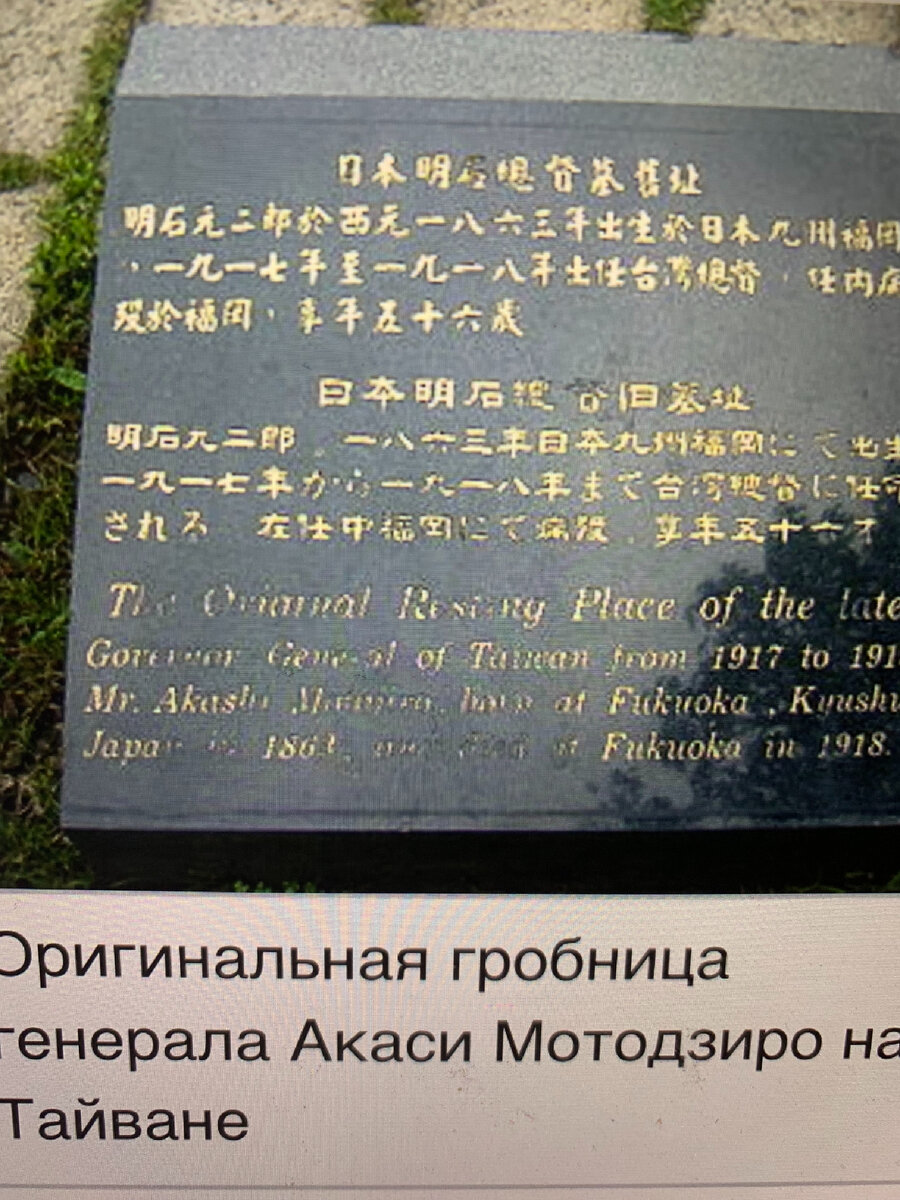 日本明石總督墓舊址
明石元二郎於西元一八六三年出生於日本九州福岡
，一九一七年至一九一八年出任台灣總督，任內病
歿於福岡，享年五十六歲
日本明石總督旧墓址
明石九二郎。一八六三年日本九州福岡にて出生
一九一七年から一九一八年まで台湾總督に任命
される 在任中福岡にて病歿．享年五十六才
The Original Resting Place of the late
Governor General of Taiwan from 1917 to 191
Mr. Akashi born at Fukuoka , Kyushu
Japan in 1863, and died at Fukuoka in 1918.
Оригинальная гробница
генерала Акаси Мотодзиро на
Тайване